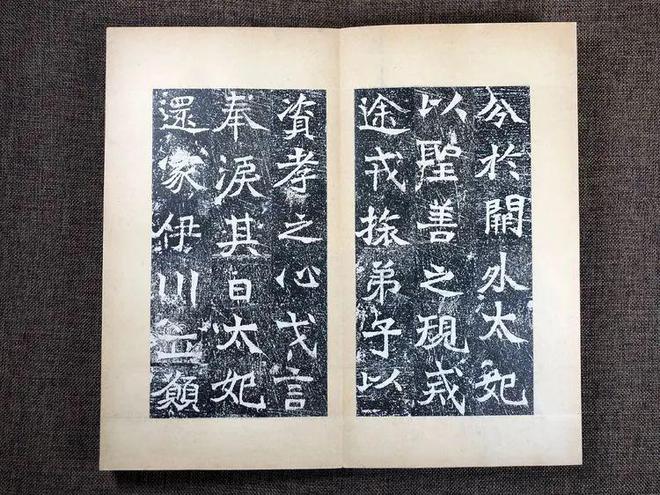 分於關外太妃
以聖善之規戒
途戎旅弟子以
資孝之心戈言
奉淚其日太妃
還家伊川立願